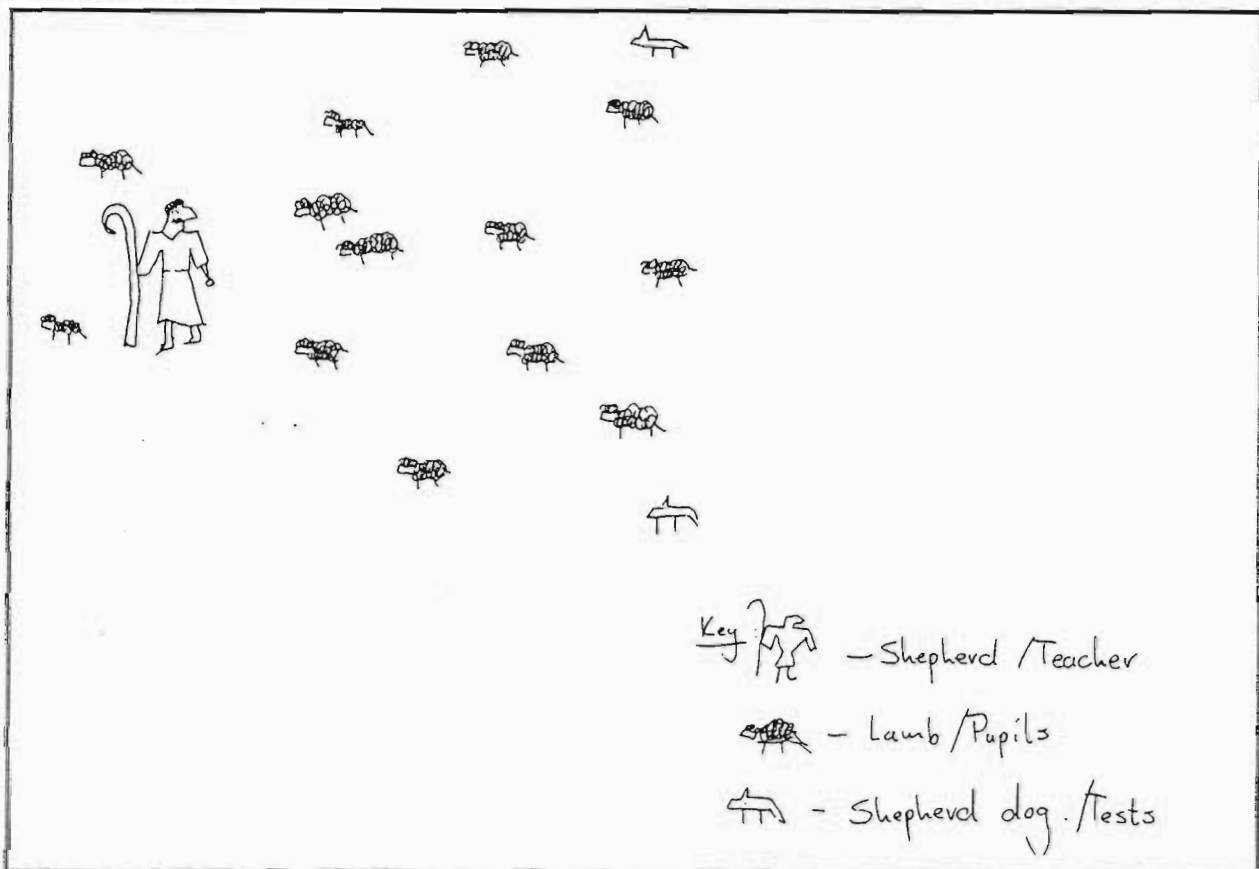 Key
– Shepherd /Teacher
– Lamb /Pupils
– Shepherd dog. /Tests